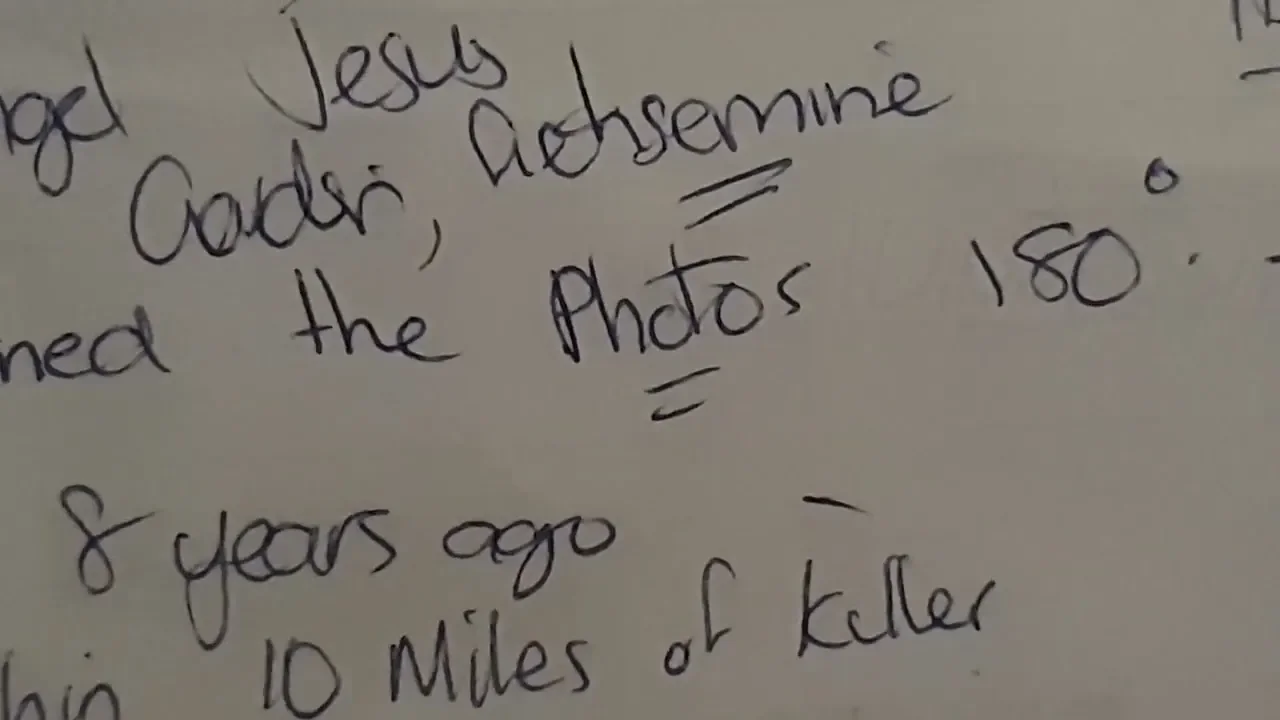 ngel Jesus
Gaderi, Gethsemine
ned the Photos 180°.
8 years ago
hin 10 Miles of killer